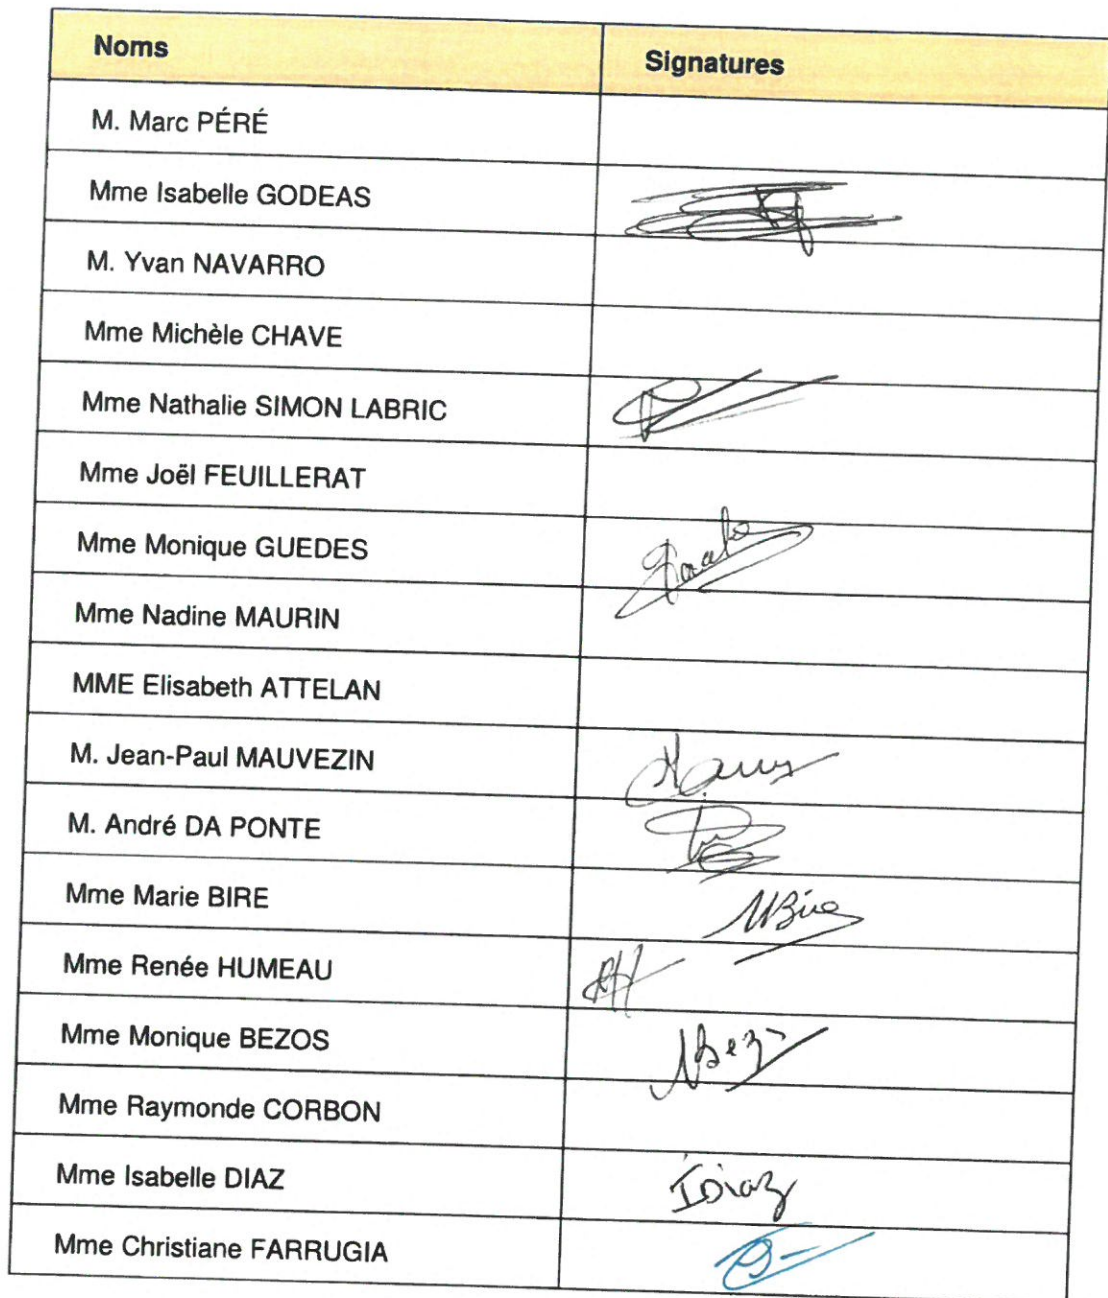 Noms Signatures
M. Marc PÉRÉ
Mme Isabelle GODEAS
M. Yvan NAVARRO
Mme Michèle CHAVE
Mme Nathalie SIMON LABRIC
Mme Joël FEUILLERAT
Mme Monique GUEDES
Mme Nadine MAURIN
MME Elisabeth ATTELAN
M. Jean-Paul MAUVEZIN
M. André DA PONTE
Mme Marie BIRE MBire
Mme Renée HUMEAU
Mme Monique BEZOS
Mme Raymonde CORBON
Mme Isabelle DIAZ IDiaz
Mme Christiane FARRUGIA